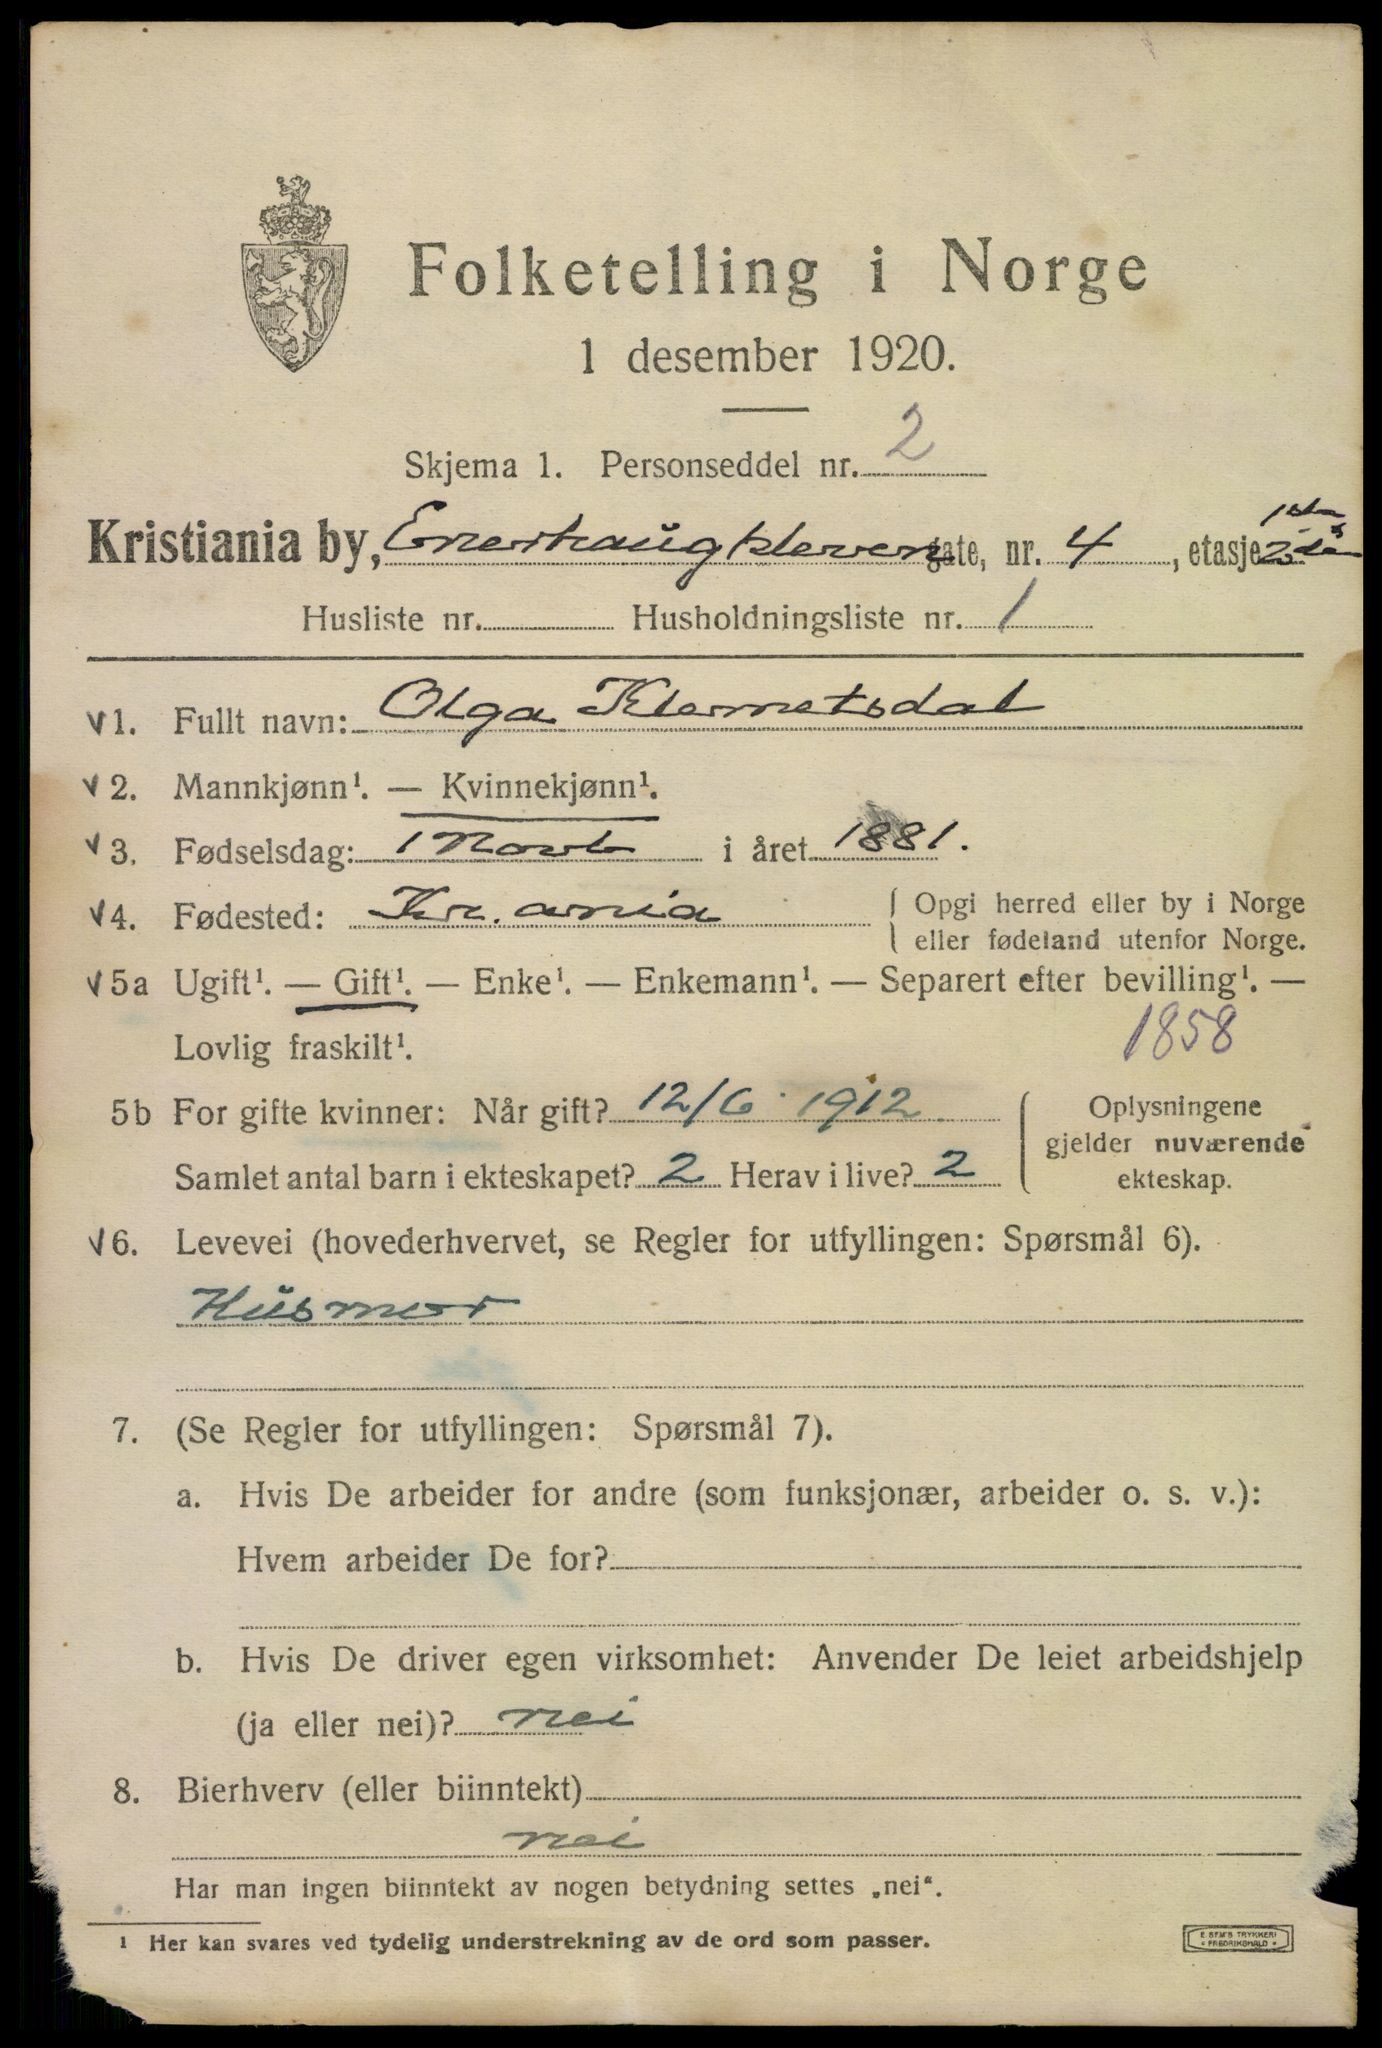 Folketelling i Norge
1 desember 1920.
Skjema 1. Personseddel nr. 2
Kristiania by, Enerhaugkleven gate, nr. 4, etasje 1ste 2den
Husliste nr. Husholdningsliste nr. 1
v 1. Fullt navn: Olga Klemetsdal
v 2. Mannkjønn¹. — Kvinnekjønn¹.
v 3. Fødselsdag: 1 Novb i året 1881.
v 4. Fødested: Kr.ania { Opgi herred eller by i Norge
eller fødeland utenfor Norge.
v 5a Ugift¹. — Gift¹. — Enke¹. — Enkemann¹. — Separert efter bevilling¹. —
Lovlig fraskilt¹. 1858
5b For gifte kvinner: Når gift? 12/6 1912
Samlet antal barn i ekteskapet? 2 Herav i live? 2
Oplysningene
gjelder nuværende
ekteskap.
v 6. Levevei (hovederhvervet, se Regler for utfyllingen: Spørsmål 6).
Husmor
7. (Se Regler for utfyllingen: Spørsmål 7).
a. Hvis De arbeider for andre (som funksjonær, arbeider o. s. v.):
Hvem arbeider De for?
b. Hvis De driver egen virksomhet: Anvender De leiet arbeidshjelp
(ja eller nei)? nei
8. Bierhverv (eller biinntekt)
nei
Har man ingen biinntekt av nogen betydning settes „nei“.
¹ Her kan svares ved tydelig understrekning av de ord som passer.
E. SEM'S TRYKKERI
FREDRIKSHALD